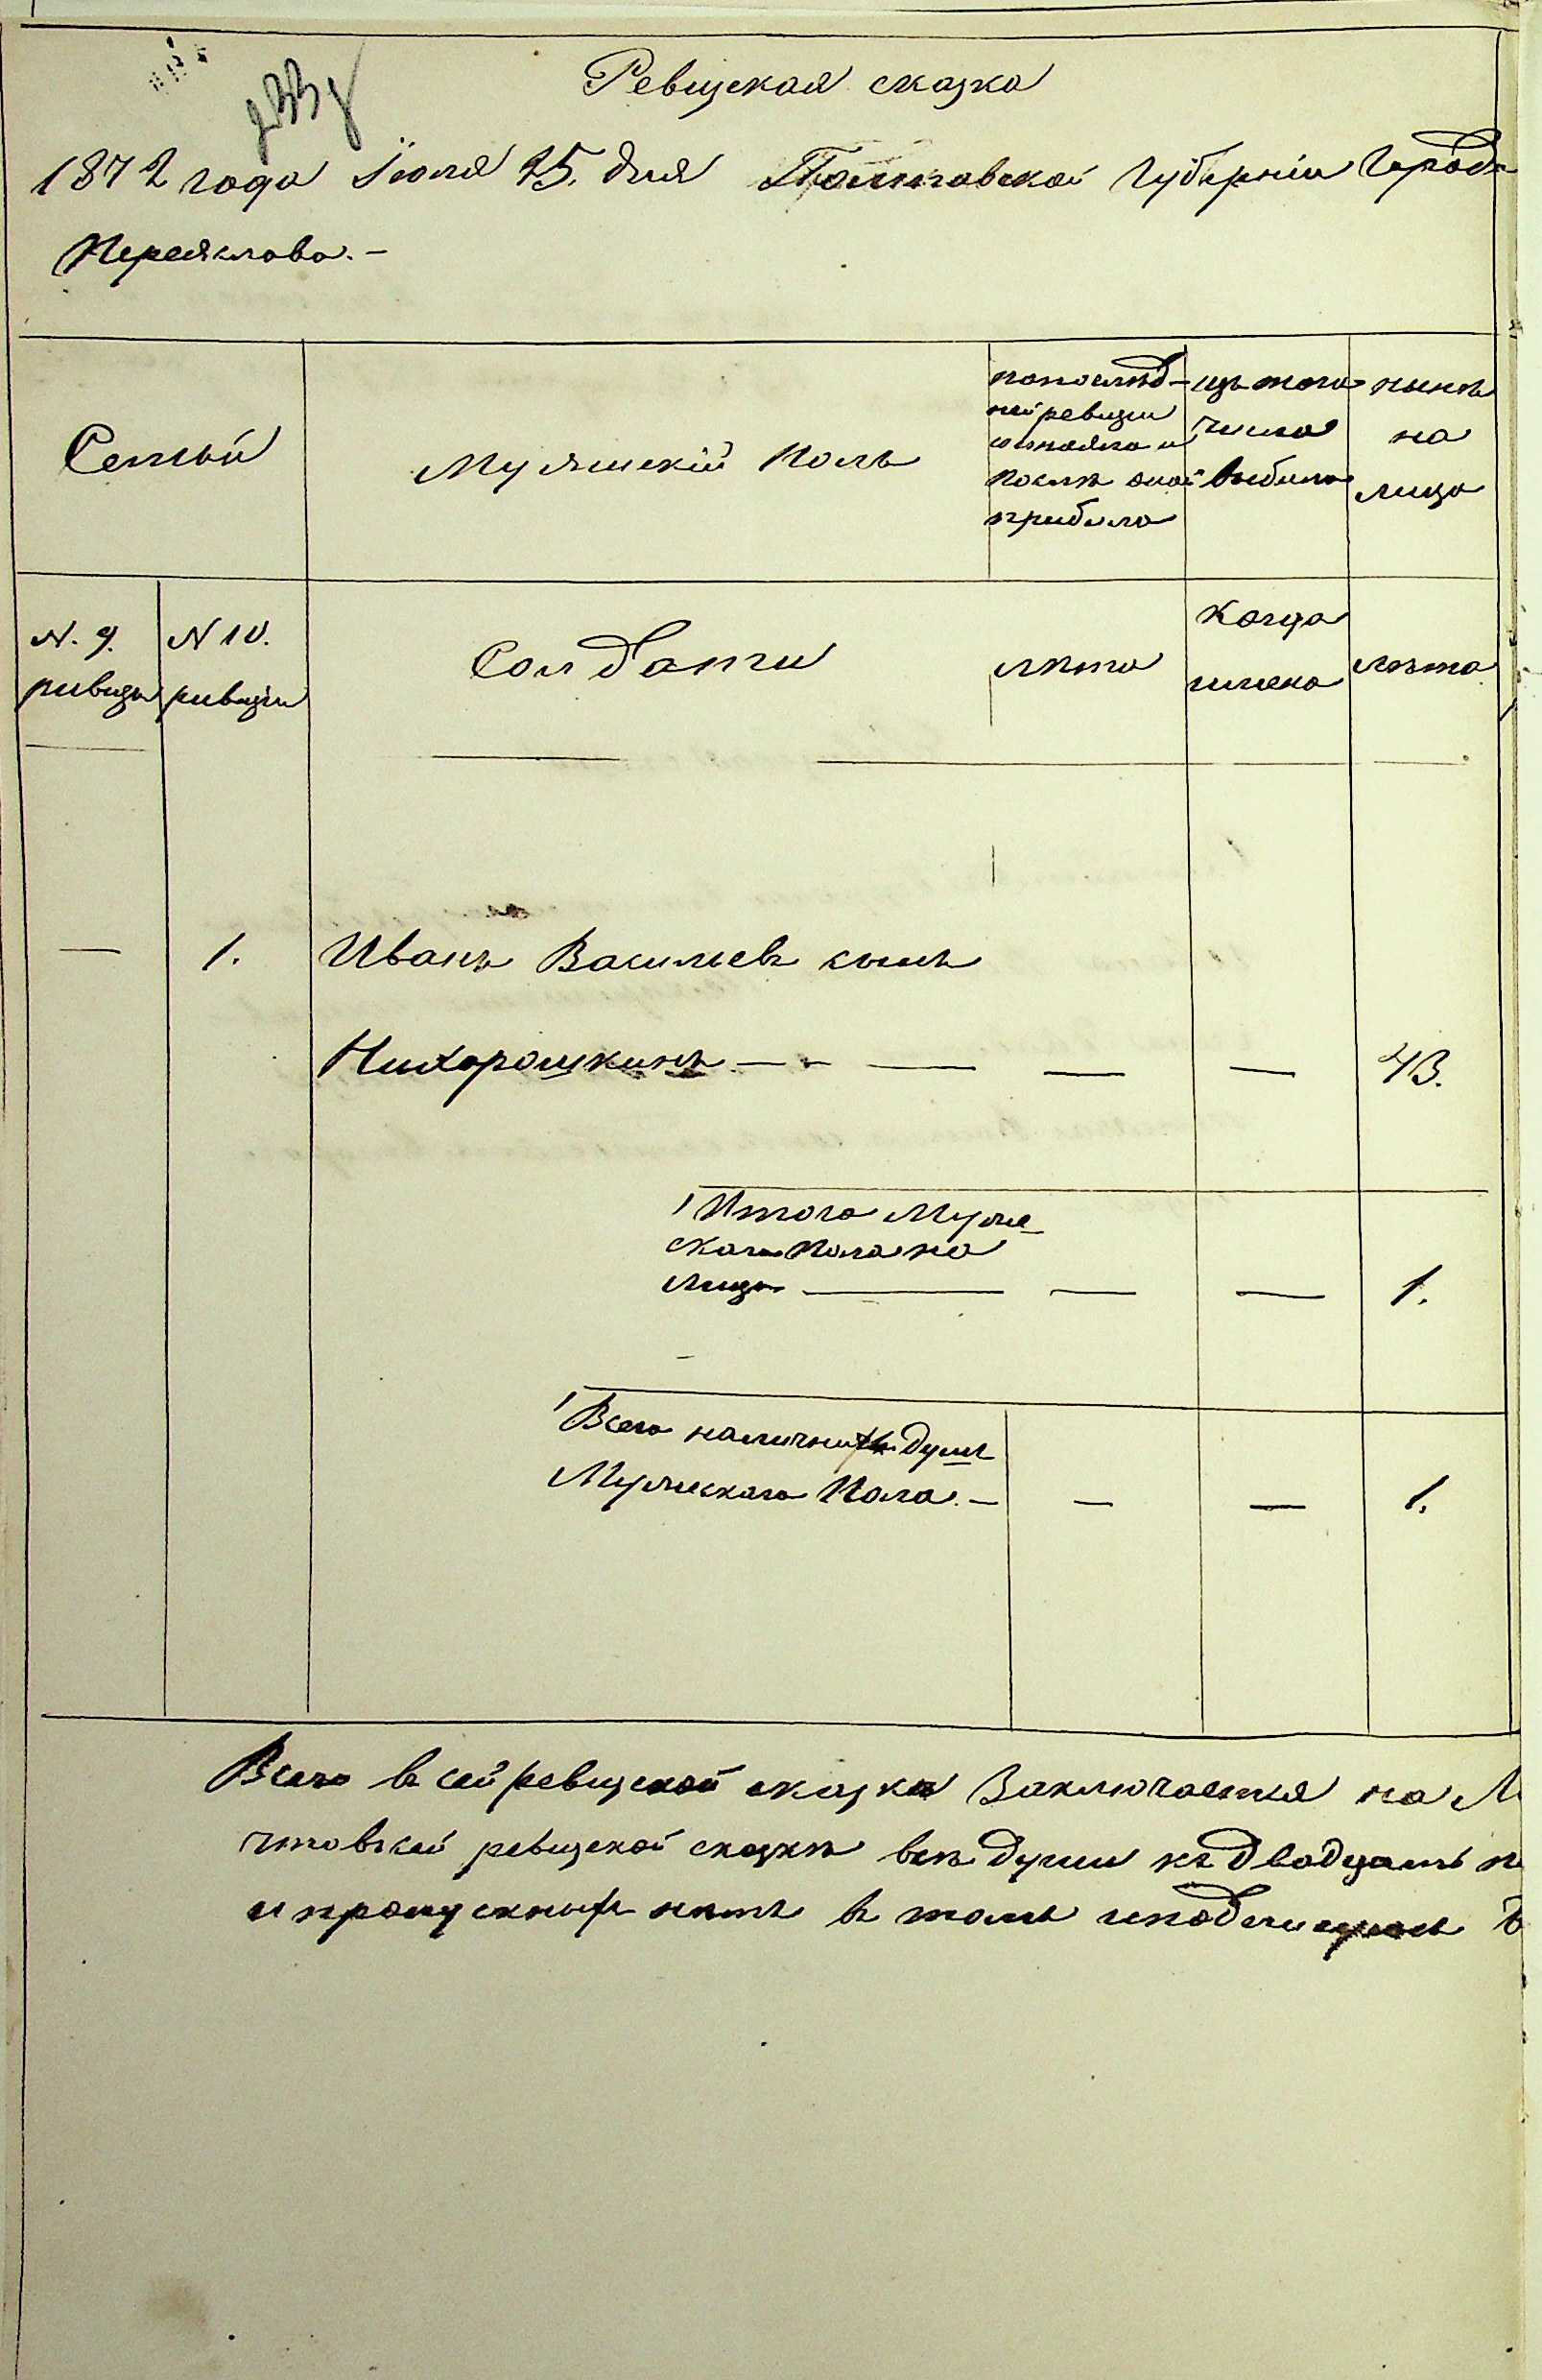 Ревизская сказка
1872 года Июля 25. дня Полтавской Губерніи Города
Переяслова. –
Семьи
Мужескій полъ
по послѣд-
ней ревизіи
состояло и
послѣ оной
прибыло
изъ того
числа
выбыло
нынѣ
на
лицо
N. 9.
ривизи
N 10.
ривизіи
Солдатги
лѣта
когда
имено
лѣта
— 1. Иванъ Васильевъ сынъ
Нихорошкинъ — — — — 43.
Итого Муже
скаго Пола на
лицо — — — 1.
Всего наличныхъ душъ
Мужескаго Пола. – — — 1.
Всего в сей ревизской сказки Заключается на Л
что в сей ревизской сказкѣ всѣ души къ двадцать п
и пропускныхъ нѣтъ в томъ и подпишуюсь